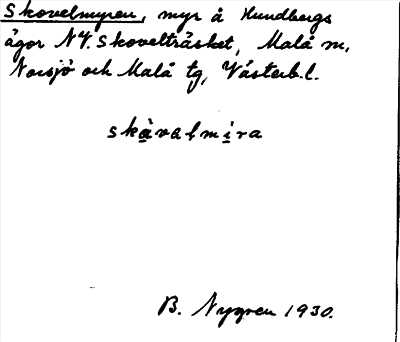 Skovelmyren, myr å Hundbergs
ägor NV. Skovelträsket, Malå sn,
Norsjö och Malå tg, Västerb. l.
skàvalmira
B. Nygren 1930.